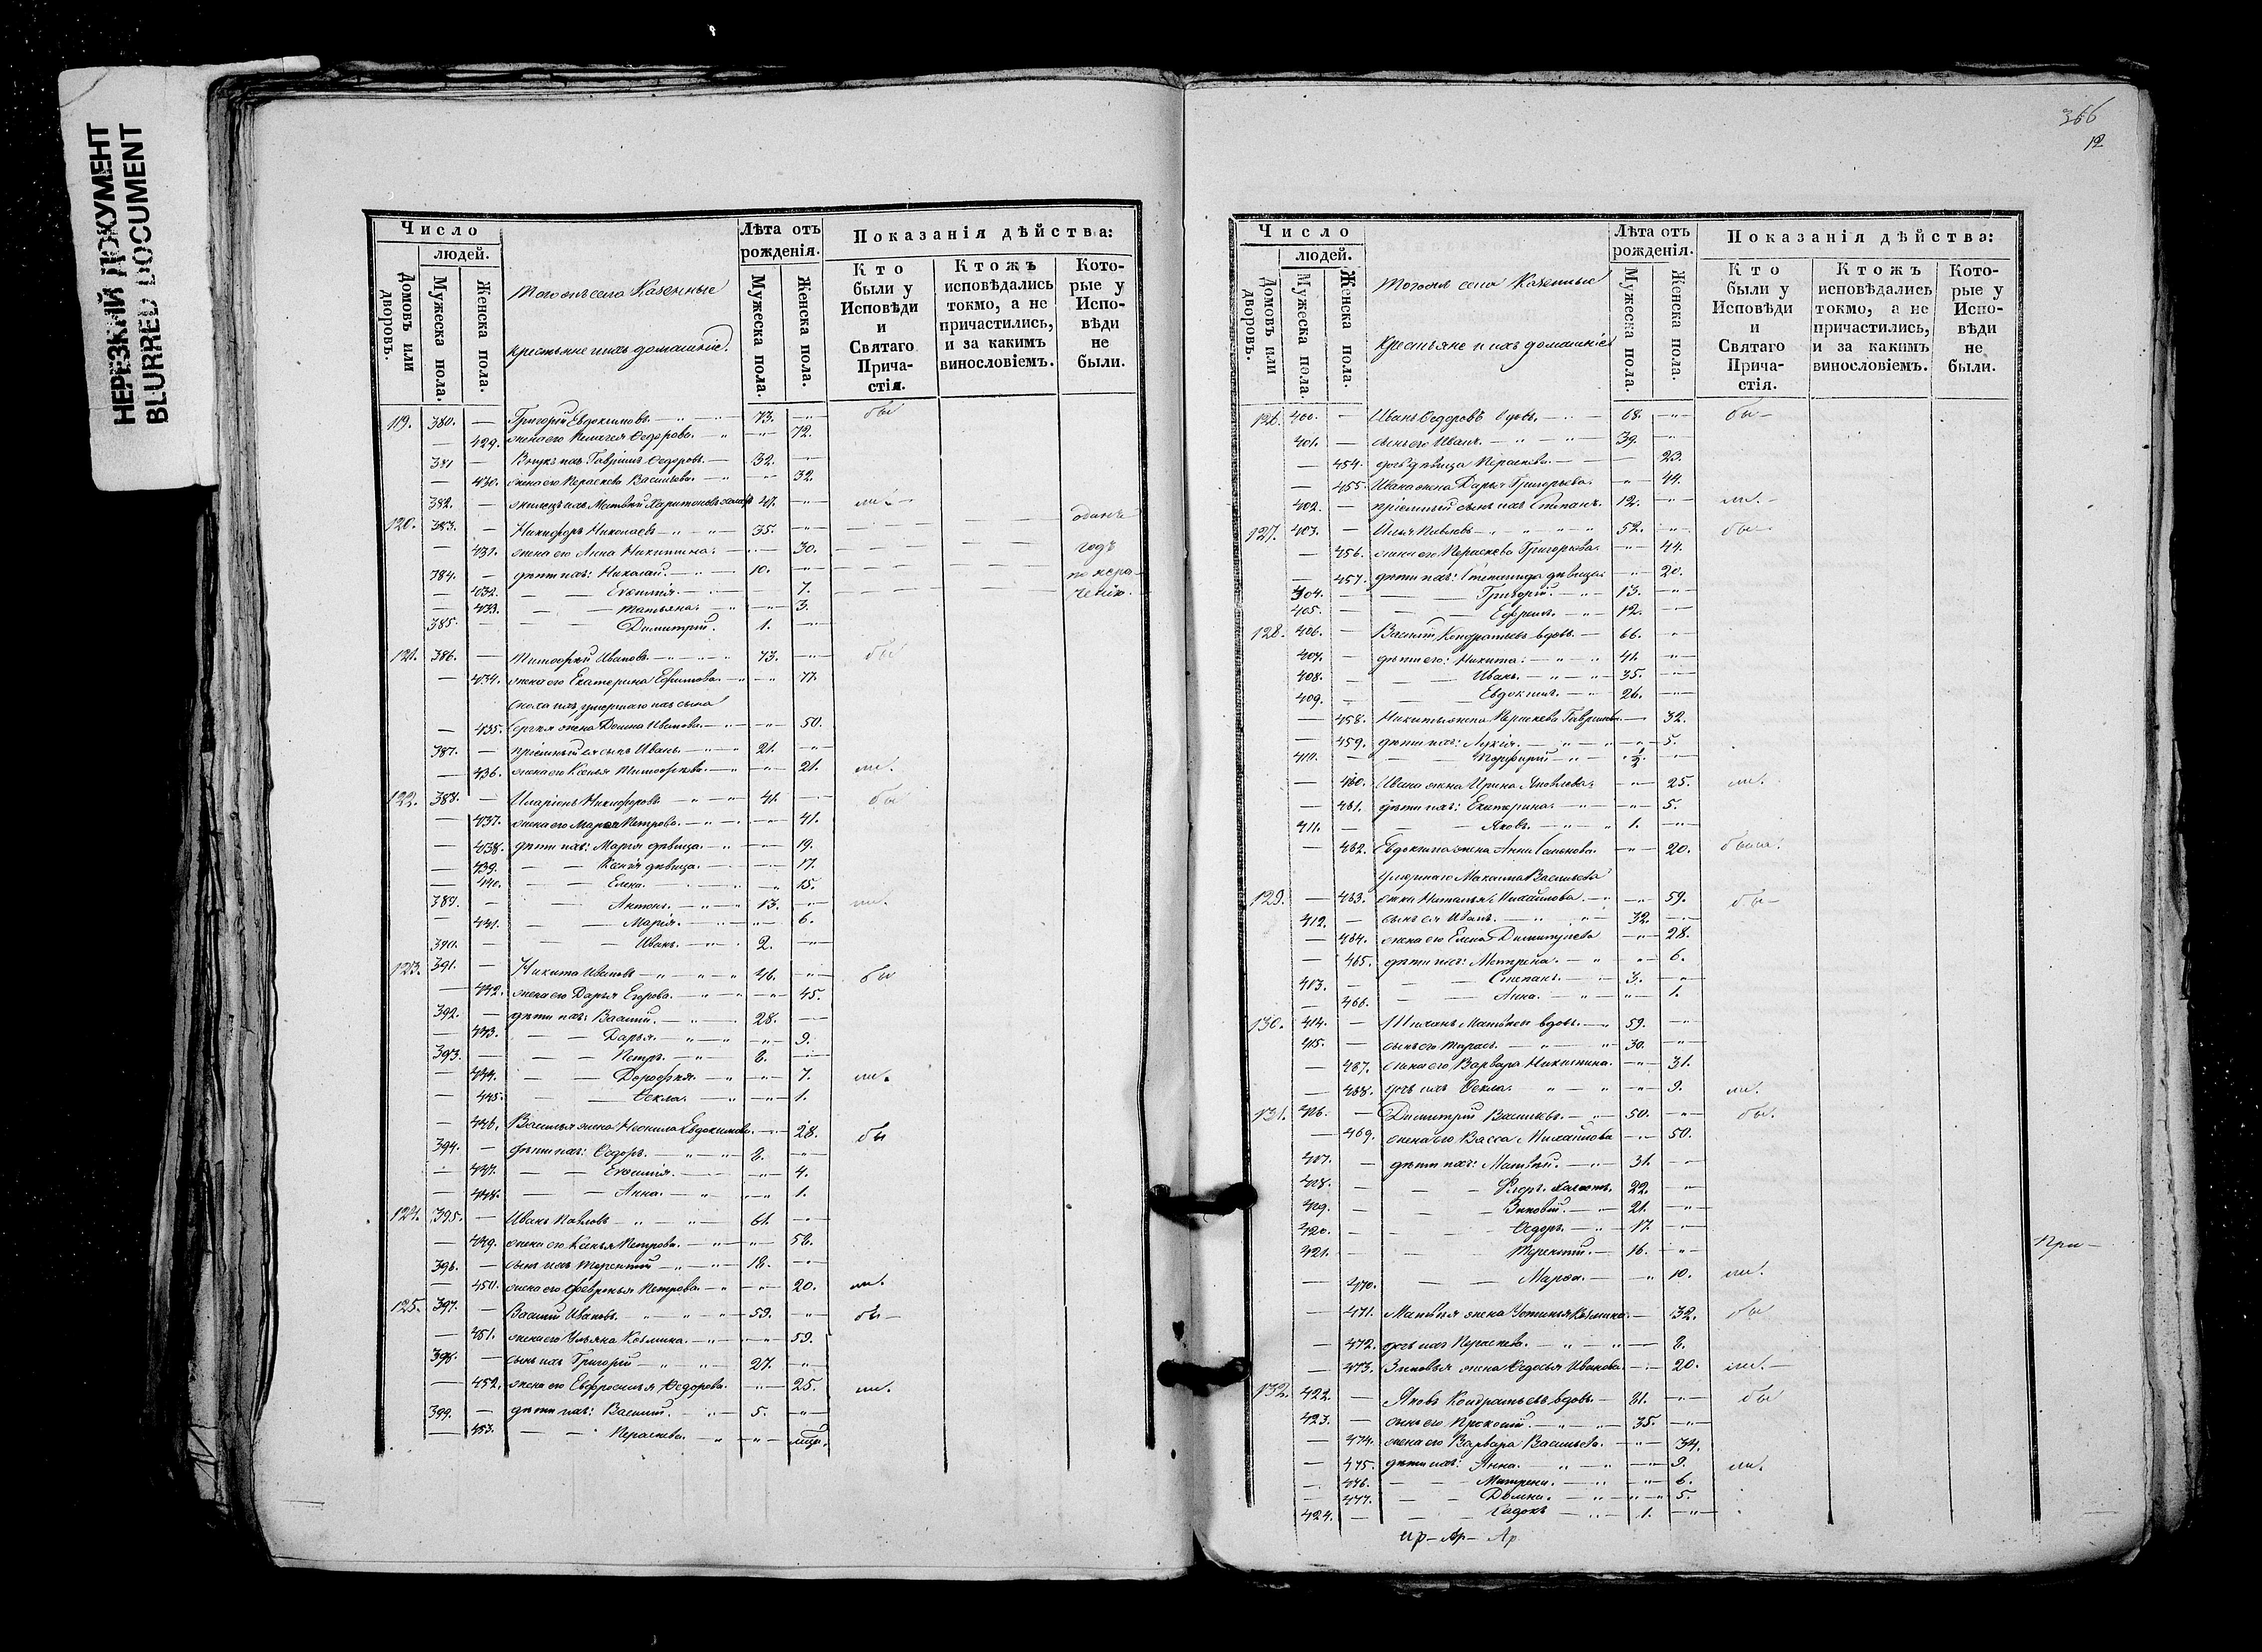 НЕРЕЗКИЙ ДОКУМЕНТ
BLURRED DOCUMENT
Число
людей.
Домовъ или дворовъ.
Мужеска пола.
Женска пола.
Тогожъ села Казенные
крестьяне и ихъ домашніе.
Лѣта отъ рожденія.
Мужеска пола.
Женска пола.
Показанія дѣйства:
Кто были у Исповѣди и Святаго Причастія.
Ктожъ исповѣдались токмо, а не причастились, и за какимъ винословіемъ.
Которые у Исповѣди не были.
119. 380. — Григорій Евдокимовъ. — 73. — бы
— 429. жена его Пелагея Ѳедорова. — 72.
381 — Внукъ ихъ Гавріилъ Ѳедоровъ. — 32. —
— 430. жена его Параскева Васильева. — 32.
382. — жилецъ ихъ Матвѣй Харитоновъ холостъ 47. — ли. —
120. 383. — Никифоръ Николаевъ — 35. —
— 431. жена его Анна Никитина. — 30. — одинъ годъ
384. — дѣти ихъ: Николай. — 10. — по нера-
— 432. — Евѳимія. — 7. — ченію.
— 433. — Татьяна. — 3.
385. — Димитрій. 1. —
121. 386. — Тимоѳей Ивановъ. — 73. — бы
— 434. жена его Екатерина Ефимова. — 77.
Сноха ихъ, умершаго ихъ сына
— 435. Сергія жена Домна Иванова. — 50.
387. — пріемный ея сынъ Иванъ. — 21. —
— 436. жена его Ксенья Тимоѳеева. — 21. ли.
122. 388. — Иларіонъ Никифоровъ. — 41. — бы
— 437. жена его Марѳа Петрова. — 41.
— 438. дѣти ихъ: Марія дѣвица. — 19.
— 439. — Ксенія дѣвица. — 17.
— 440. — Елена. — 15.
389. — Антонъ. — 13. — ли.
— 441. — Марія. — 6.
390. — Иванъ. — 2. —
123. 391. — Никита Ивановъ — 46. — бы
— 442. жена его Дарья Егорова. — 45.
392. — дѣти ихъ: Василій. — 28. —
— 443. — Дарья. — 9.
393. — Петръ. — 8. —
— 444. — Дороѳея. — 7. ли.
— 445. — Ѳекла. — 1.
— 446. Василья жена Неонила Евдокимова. — 28. бы
394. — дѣти ихъ: Ѳедоръ. — 8. —
— 447. — Евѳимія. — 4.
— 448. — Анна. — 1.
124. 395. — Иванъ Павловъ — 61. —
— 449. жена его Ксенья Петрова. — 58.
396. — сынъ ихъ Терентій — 18. —
— 450. жена его Февронья Петрова. — 20. ли.
125. 397. — Василій Ивановъ. — 59. — бы —
— 451. жена его Ульяна Козмина. — 59.
398. — сынъ ихъ Григорій — 27. —
— 452. жена его Евфросинья Ѳедорова. — 25. ли.
399. — дѣти ихъ: Василій. — 5. —
— 453. — Параскева. —
366
12
Число
людей.
Домовъ или дворовъ.
Мужеска пола.
Женска пола.
Тогожъ села Казенные
крестьяне и ихъ домашніе
Лѣта отъ рожденія.
Мужеска пола.
Женска пола.
Показанія дѣйства:
Кто были у Исповѣди и Святаго Причастія.
Ктожъ исповѣдались токмо, а не причастились, и за какимъ винословіемъ.
Которые у Исповѣди не были.
126. 400. — Иванъ Ѳедоровъ вдовъ. — 68. — бы —
401. — сынъ его Иванъ. — 39. —
— 454. дочь дѣвица Параскева. — 23.
— 455. Ивана жена Дарья Григорьева. — 44.
402. — пріемный сынъ ихъ Степанъ. 12. — ли. —
127. 403. — Илья Павловъ — 52. — бы —
— 456. жена его Параскева Григорьева. — 44.
— 457. дѣти ихъ: Степанида дѣвица. — 20.
404. — Григорій. — 13. —
405. — Ефремъ. — 12. —
128. 406. — Василій Кондратьевъ вдовъ. — 66. —
407. — дѣти его: Никита. — 41. —
408. — Иванъ. — 35. —
409. — Евдокимъ. — 26. —
— 458. Никиты жена Параскева Гаврилова. — 32.
— 459. дѣти ихъ: Лукія. — 5.
410. — Порфирій — ½. —
— 460. Ивана жена Ирина Яковлева. — 25. ли.
— 461. дѣти ихъ: Екатерина. — 5.
411. — Яковъ. — 1. —
— 462. Евдокима жена Анна Семенова. — 20. была.
умершаго Максима Васильева
129. — 463. жена Наталья Михайлова. — 59. бы —
412. — сынъ ея Иванъ. — 32. —
— 464. жена его Елена Димитріева — 28.
— 465. дѣти ихъ: Матрена. — 6.
413. — Степанъ. — 3. —
— 466. — Анна. — 1.
130. 414. — Матвѣевъ вдовъ. — 59. —
415. — сынъ его Тарасъ. — 30. —
— 467. жена его Варвара Никитина. — 31.
— 468. дочь ихъ Ѳекла. — 9. ли.
131. 416. — Димитрій Васильевъ. — 50. — бы.
— 469. жена его Васса Михайлова — 50.
417. — дѣти ихъ: Матвѣй. — 31. —
418. — Флоръ. холостъ. 22. —
419. — Зиновій. — 21. —
420. — Ѳедоръ. — 17. —
421. — Терентій. — 16. —
— 470. — Марѳа. — 10. ли.
— 471. Матвѣя жена Устинья Козмина. — 32. бы
— 472. дочь ихъ Параскева. — 8.
— 473. Зиновья жена Ѳедосья Иванова. — 20. ли. —
132. 422. — Яковъ Кондратьевъ вдовъ. — 81. — бы
423. — сынъ его Прокопій. — 35. —
— 474. жена его Варвара Васильева. — 34.
— 475. дѣти ихъ: Анна. — 9. ли.
— 476. — Матрена. — 6.
— 477. — Домна. — 5.
424. — Садокъ — 1. —
При —